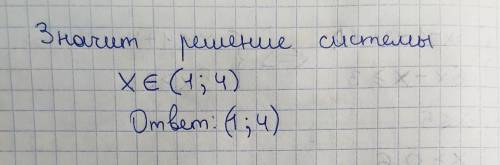 Значит решение системы
x ∈ (1; 4)
Ответ: (1; 4)